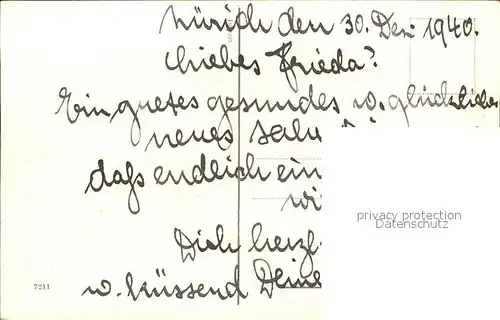 Zürich den 30. Dez. 1940.
Liebes Frieda!
Ein gutes gesundes u. glückliches
neues Jahr
daß endlich ein
Dich herzl.
u. küssend Deine
privacy protection
Datenschutz
7211